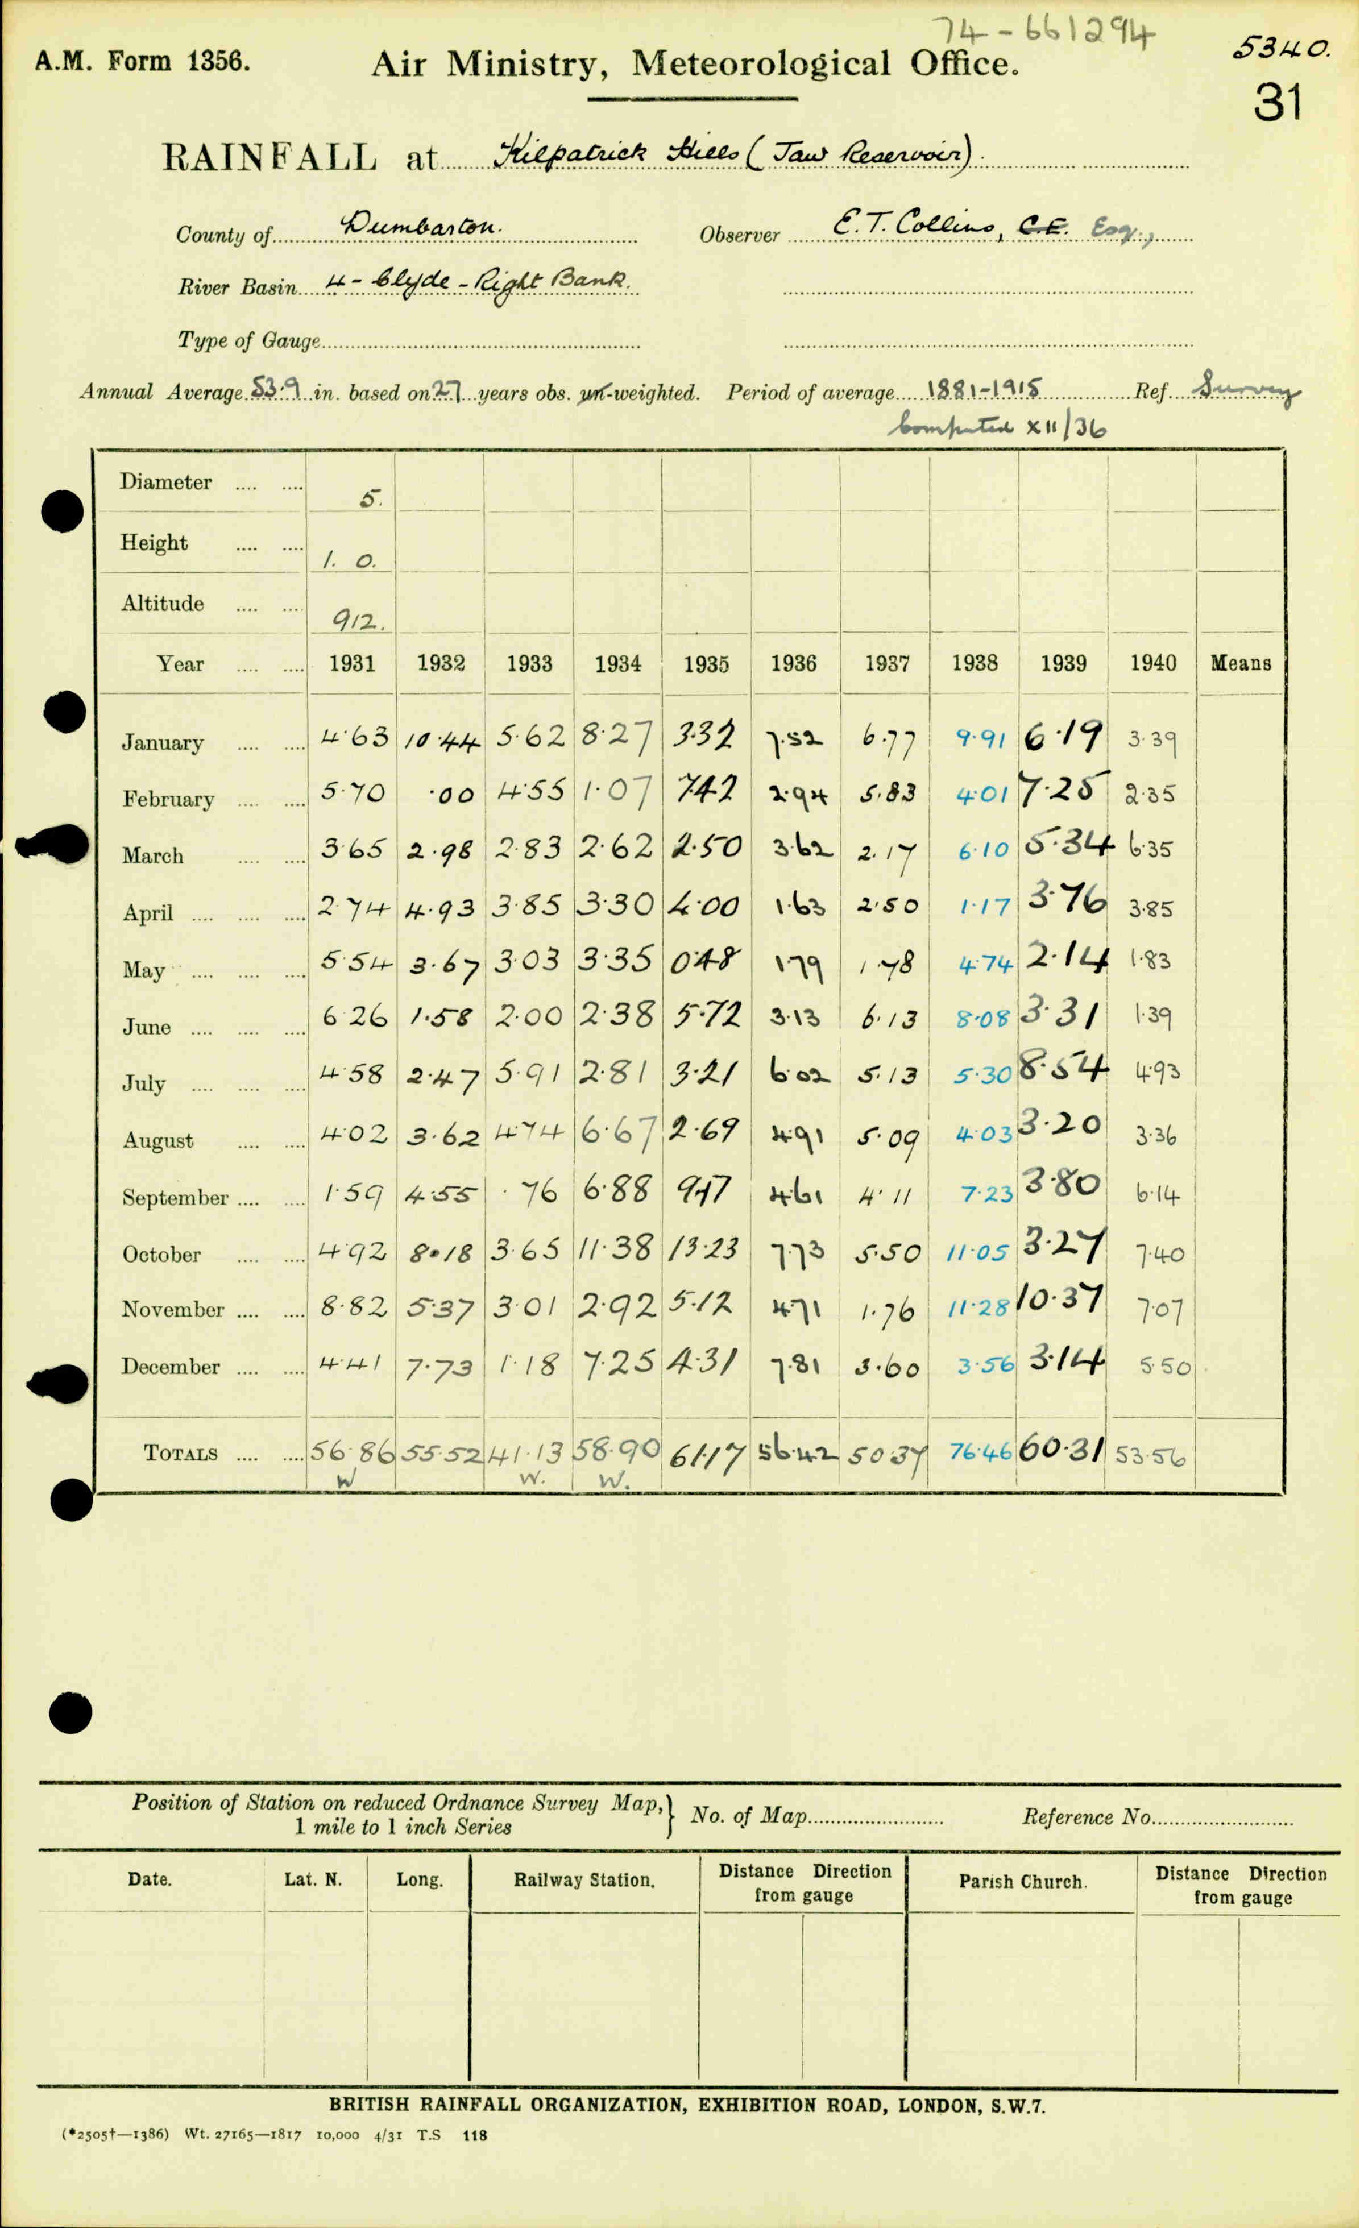 74-661294
A.M. Form 1356. Air Ministry, Meteorological Office. 5340.
31
RAINFALL at Kilpatrick Hills (Jaw Reservoir).
County of Dumbarton. Observer E.T. Collins, C.E. Esq.,
River Basin 4 - Clyde - Right Bank.
Type of Gauge
Annual Average 53.9 in. based on 27 years obs. un-weighted. Period of average 1881-1915 Ref. Survey
Computed XII/36
Diameter .... .... 5.
Height .... .... 1. 0.
Altitude .... .... 912.
Year .... .... 1931 1932 1933 1934 1935 1936 1937 1938 1939 1940 Means
January .... .... 4·63 10·44 5·62 8·27 3·32 7·52 6·77 9·91 6·19 3·39
February .... .... 5·70 ·00 4·55 1·07 7·42 2·94 5·83 4·01 7·25 2·35
March .... .... 3·65 2·98 2·83 2·62 2·50 3·62 2·17 6·10 5·34 6·35
April .... .... .... 2·74 4·93 3·85 3·30 4·00 1·63 2·50 1·17 3·76 3·85
May .... .... .... 5·54 3·67 3·03 3·35 0·48 1·79 1·78 4·74 2·14 1·83
June .... .... .... 6·26 1·58 2·00 2·38 5·72 3·13 6·13 8·08 3·31 1·39
July .... .... .... 4·58 2·47 5·91 2·81 3·21 6·02 5·13 5·30 8·54 4·93
August .... .... 4·02 3·62 4·74 6·67 2·69 4·91 5·09 4·03 3·20 3·36
September .... .... 1·59 4·55 ·76 6·88 9·17 4·61 4·11 7·23 3·80 6·14
October .... .... 4·92 8·18 3·65 11·38 13·23 7·73 5·50 11·05 3·27 7·40
November .... .... 8·82 5·37 3·01 2·92 5·12 4·71 1·76 11·28 10·37 7·07
December .... .... 4·41 7·73 1·18 7·25 4·31 7·81 3·60 3·56 3·14 5·50
TOTALS .... .... 56·86 55·52 41·13 58·90 61·17 56·42 50·37 76·46 60·31 53·56
W W. W.
Position of Station on reduced Ordnance Survey Map, } No. of Map Reference No.
1 mile to 1 inch Series
Date. Lat. N. Long. Railway Station. Distance Direction from gauge Parish Church. Distance Direction from gauge
BRITISH RAINFALL ORGANIZATION, EXHIBITION ROAD, LONDON, S.W.7.
(*2505†—1386) Wt. 27165—1817 10,000 4/31 T.S 118